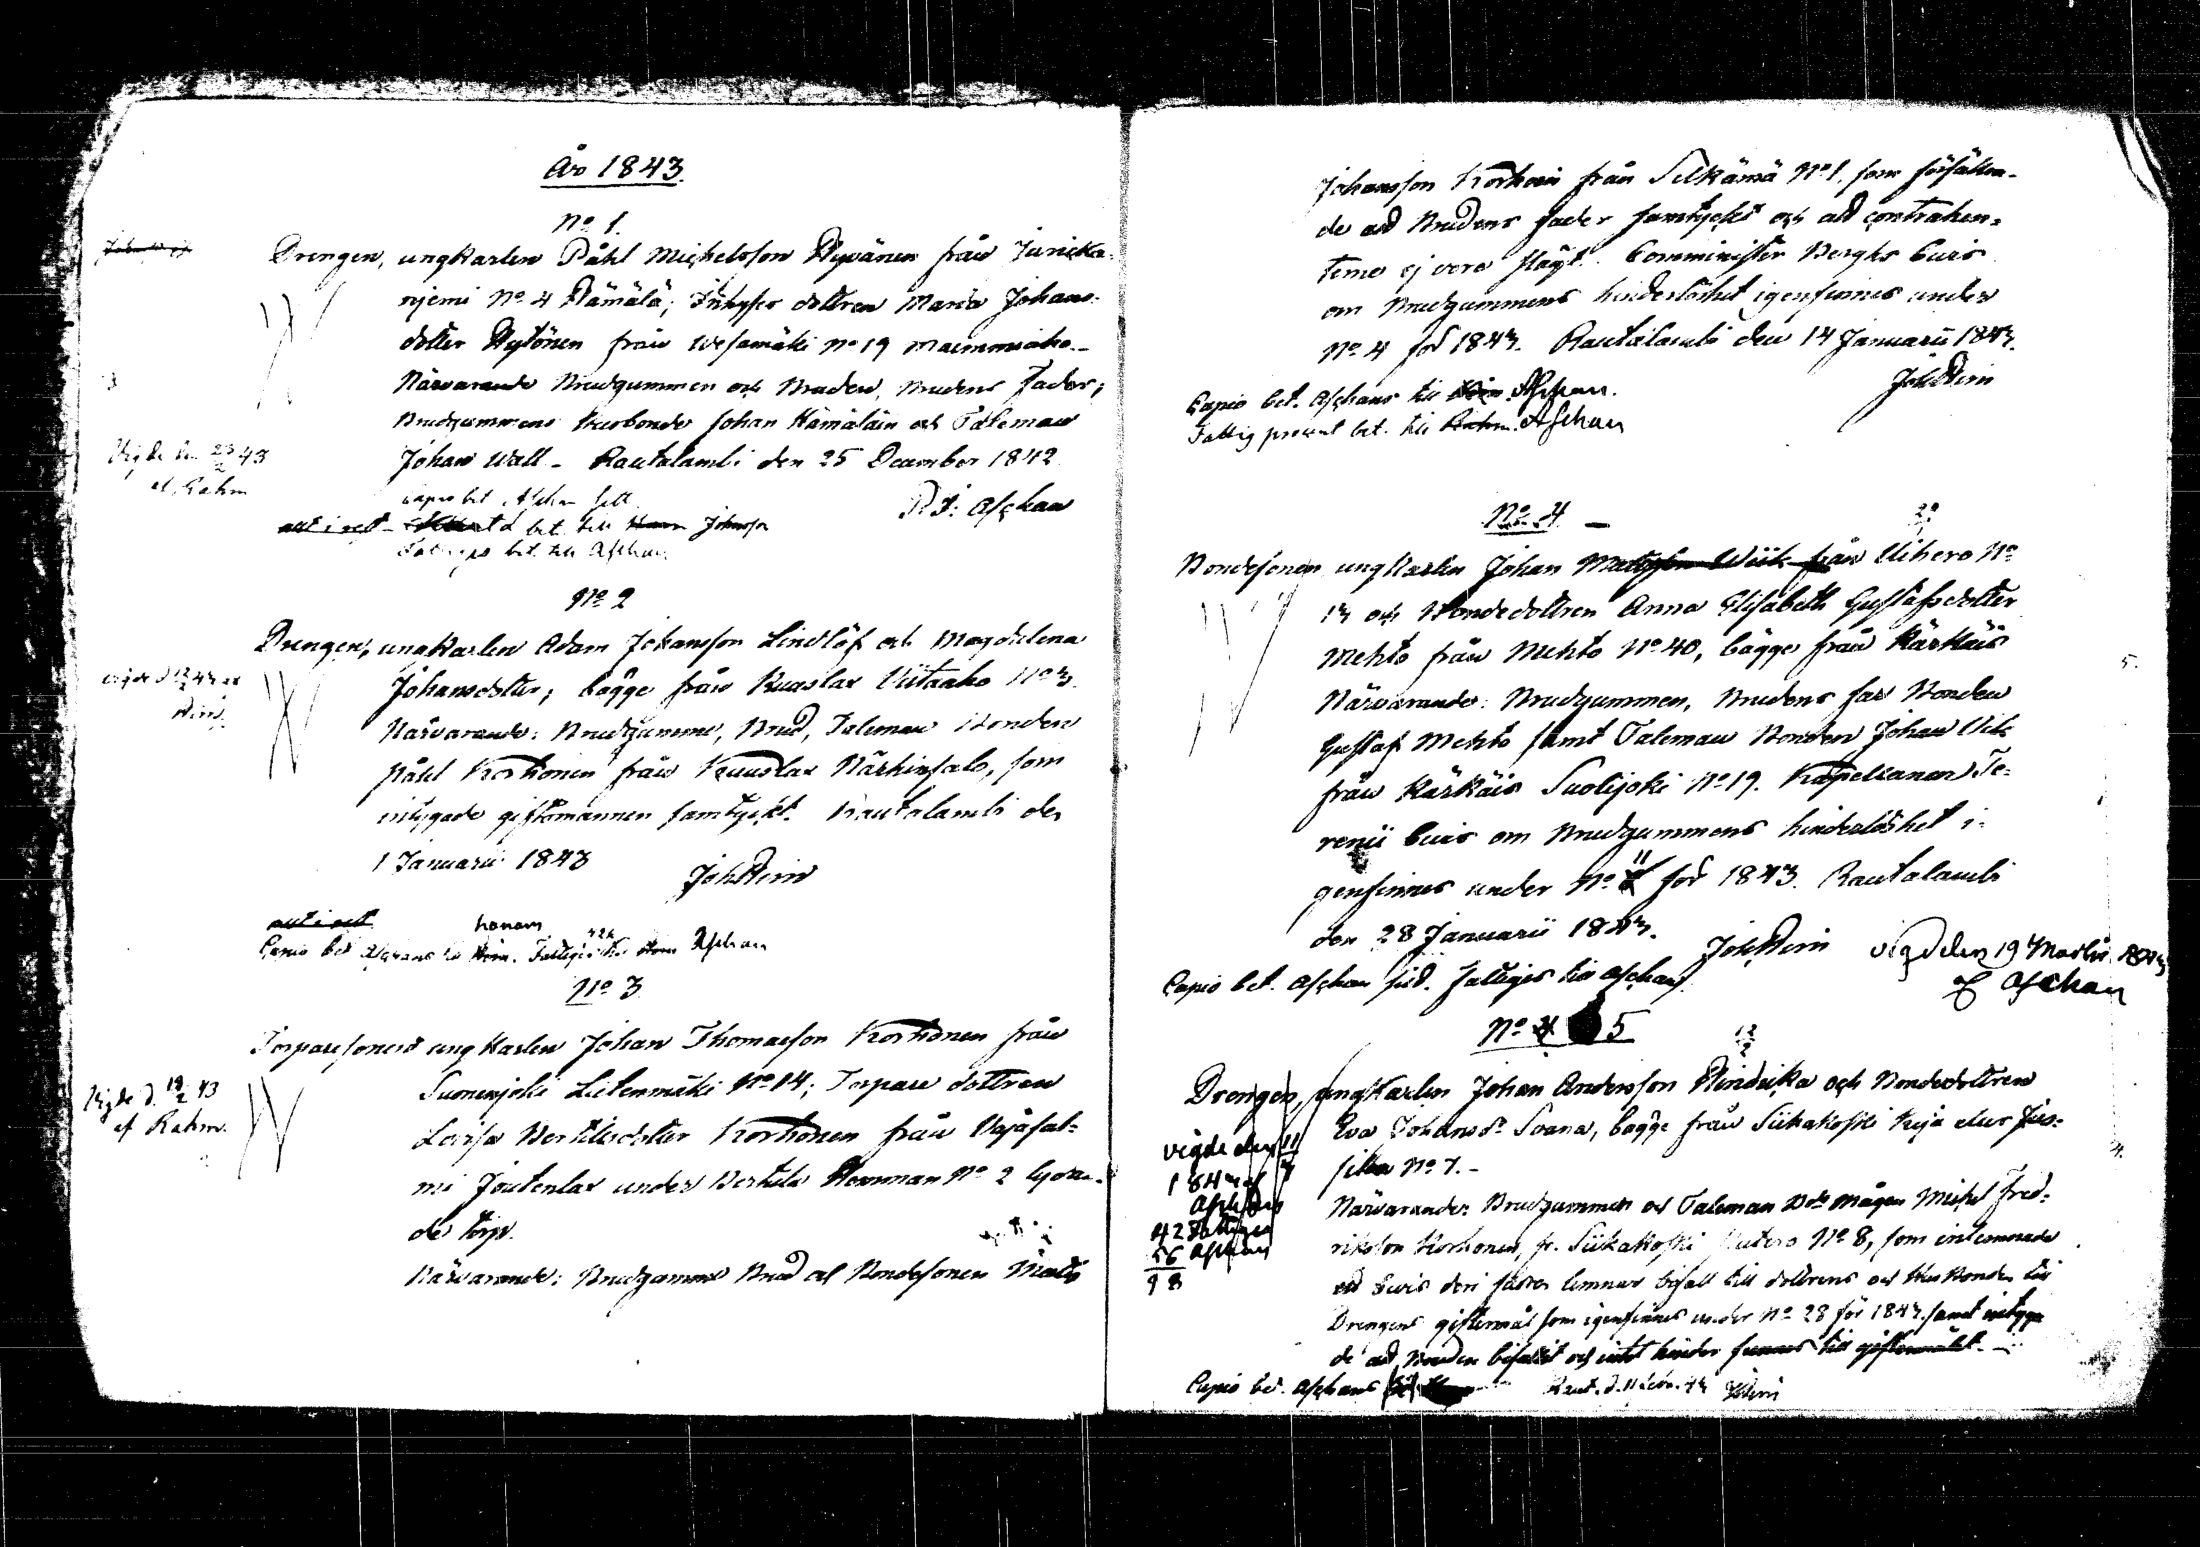 År 1843.
No 1.
Drengen, ungkarlen Påhl Michelsson Hyvänen från Juricka-
njemi No 4 Hämälä; Inhyses dottren Maria Johans-
dotter Hytönen från Wesamäki No 19
Närvarande Brudgummen och Bruden, Brudens fader,
Brudgummens Husbonde Johan Hämäläin och Taleman
Johan Wall - Rautalambi den 25 December 1842
Vigde den 23/2 43
af Rahm
P. J. Aschan
bet. till Johnsson
bet. till Aschan
No 2
Drengen, ungkarlen Adam Johansson Lindlöf och Magdalena
Johansdotter; bägge från Kuuslax Viitaaho No 3.
Närvarande: Brudgumme, Brud, Taleman Bonden
Påhl Korhonen från Kuuslax Närhinsalo, som
intygade giftomannen samtyckt. Rautalambi den
1 Januarii 1843
Joh Hern
honom
Capio bet Aschans till Aschan
No 3
Torparesonen ungkarlen Johan Thomasson Korhonen från
Suonenjoki Lietenmäki No 14; Torpare dottren
Lovisa Bertilsdotter Korhonen från Vajasal-
mi Joutenlax under Bertils Hemman No 2 lyda-
de torp.
Vigde d. 19/2 43
af Rahm.
Närvarande: Brudgumme Brud och Bondesonen Mats
Johansson Korhonen från Selkämä No 1. som försäkra-
de att Brudens fader samtyckt och att contrahen-
terne ej vore slägt. Comminister Berghs bevis
om Brudgummens hinderlöshet igenfinnes under
No 4 för 1843. Rautalambi den 14 Januarii 1843.
Joh Hern
Capio bet. Aschans till Aschan.
Fattig procent bet. till Aschan
No 4
Bondesonen ungkarlen Johan Matsson Wiik från Vihero No
13 och Bondedottren Anna Elisabeth Gustafsdotter
Mehto från Mehto No 40, bägge från Kärkäis
Närvarande: Brudgummen, Brudens far Bonden
Gustaf Mehto samt Taleman Bonden Johan Wiik
från Kärkäis Suolijoki No 19. Kapellanen Te-
renii bevis om Brudgummens hinderlöshet i-
genfinnes under No 11 för 1843. Rautalambi
den 28 Januarii 1843.
Joh Hern
Vigd den 19 Martii 1843
af Aschan
Capio bet. Aschan sjelf. fattiges till Aschan.
No 5
12/2
Drengen, ungkarlen Johan Andersson Hindrika och Bondedottren
Eva Johansdr Soana, bägge från Siikakoski Kuja eller Jus-
sila No 7. -
vigde den 11
Närvarande: Brudgummen och Taleman Bde mågen Michel Fred-
rikson Korhonen, fr. Siikakoski No 8, som inlemnade
ett bevis deri fadren lemnar bifall till dottrens och Husbonden till
Drengens giftermål som igenfinnes under No 28 för 1843. samt intyga
de att Bruden bifallit och intet hinder finnes till giftermålet.
42 Fattiges
56 Aschan
98
Capio bet. Aschans
Raut. d. 11 Febr. 43